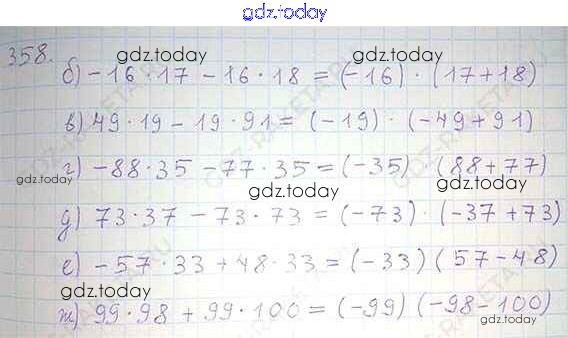 gdz.today
358.
gdz.today
gdz.today
б) -16·17 - 16·18 = (-16)·(17+18)
в) 49·19 - 19·91 = (-19)·(-49+91)
г) -88·35 - 77·35 = (-35) (88+77)
gdz.today
gdz.today
gdz.today
д) 73·37 - 73·73 = (-73)·(-37+73)
е) -57·33 + 48·33 = (-33) (57-48)
gdz.today
gdz.today
ж) 99·98 + 99·100 = (-99) (-98-100)